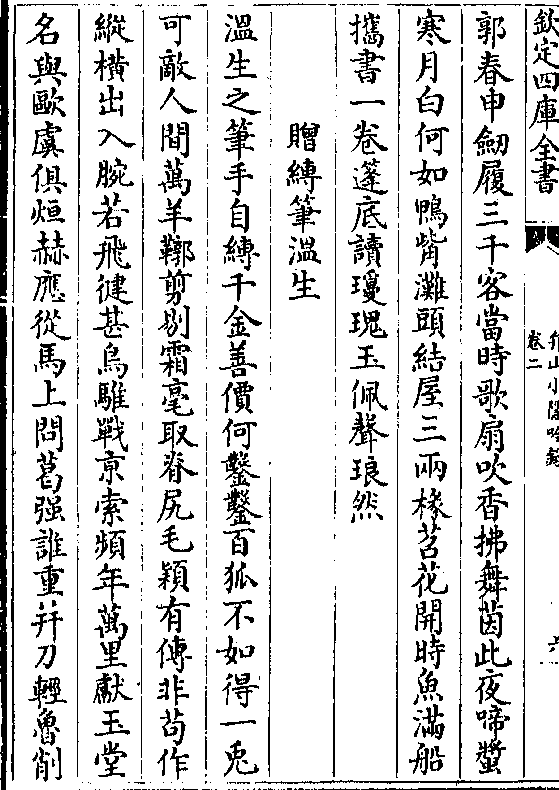 欽定四庫全書
卷二
六
郭春申劒履三千客當時歌扇吹香拂舞茵此夜啼螿
寒月白何如鴨觜灘頭結屋三兩椽苕花開時魚滿船
攜書一卷篷底讀瓊瑰玉佩聲琅然
贈縛筆溫生
溫生之筆手自縛千金善價何鑿鑿百狐不如得一兎
可敵人間萬羊鞹剪剔霜毫取脊尻毛穎有傳非茍作
縱横出入腕若飛健甚烏騅戰京索頻年萬里獻玉堂
名與歐虞俱烜赫應從馬上問葛强誰重并刀輕魯削